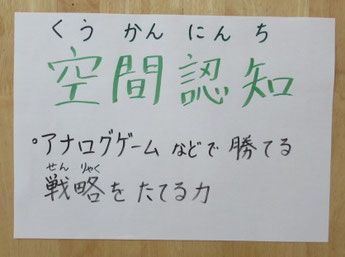 くうかんにんち
空間認知
°アナログゲームなどで勝てる
せんりゃく
戦略をたてる力